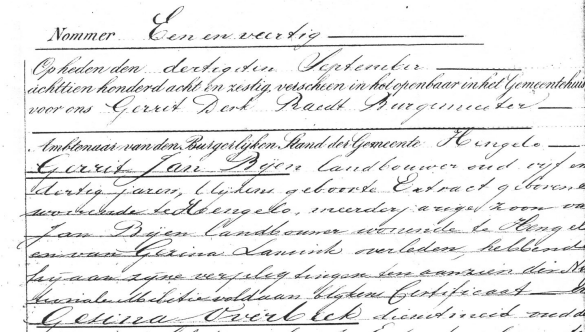 Nommer Een en veertig
Op heden den dertigsten September
achttien honderd acht en zestig, verscheen in het openbaar in het Gemeentehuis
voor ons Gerrit Derk Burgemeester
Ambtenaar van den Burgerlijken Stand der Gemeente Hengelo
Gerrit Jan Bijen landbouwer oud vijf en
dertig jaren, blijkens geboorte Extract geboren en
woonende te Hengelo, meerderjarige zoon van
Jan Bijen landbouwer wonende te Hengelo
en van Gezina overleden, hebbende
hij aan zijne verpligtingen ten aanzien der Na
tionale Militie voldaan blijkens Certificaat
Gesina Overbeek dienstmeid oud